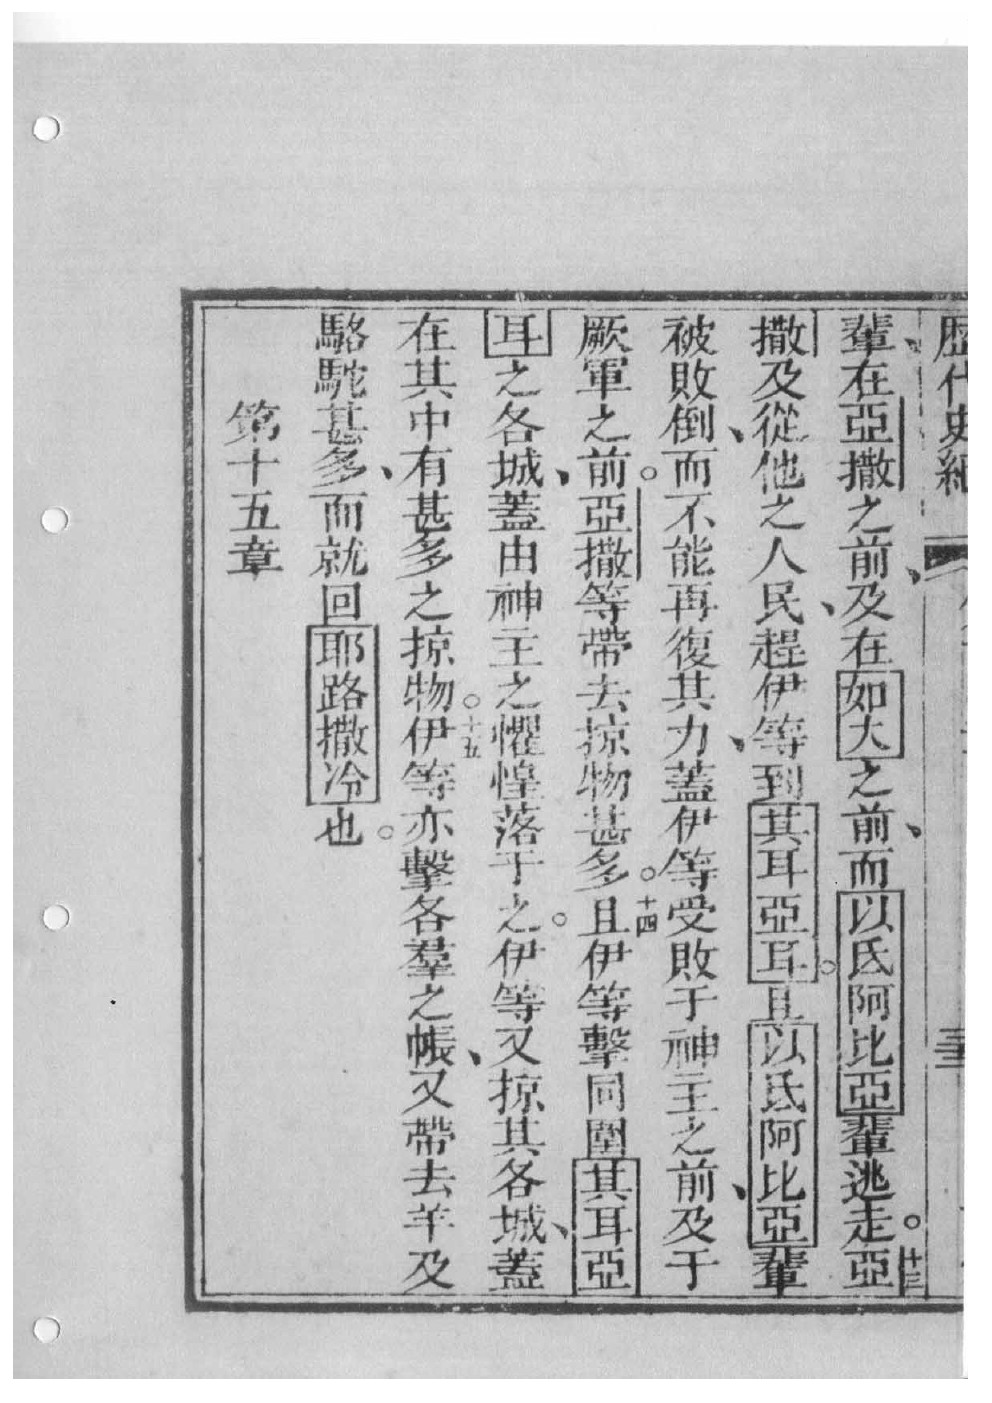 歷代史紀
輩、在亞撒之前、及在如大之前、而以氏阿比亞輩逃走。十三亞
撒及從他之人民、趕伊等到其耳亞耳。且以氏阿比亞輩
被敗倒、而不能再復其力、蓋伊等受敗于神主之前、及于
厥軍之前。亞撒等帶去掠物甚多。十四且伊等擊同圍其耳亞
耳之各城、蓋由神主之懼惶落于之。伊等又掠其各城、蓋
在其中有甚多之掠物。十五伊等亦擊各羣之帳、又帶去羊及
駱駝甚多、而就回耶路撒冷也。
第十五章